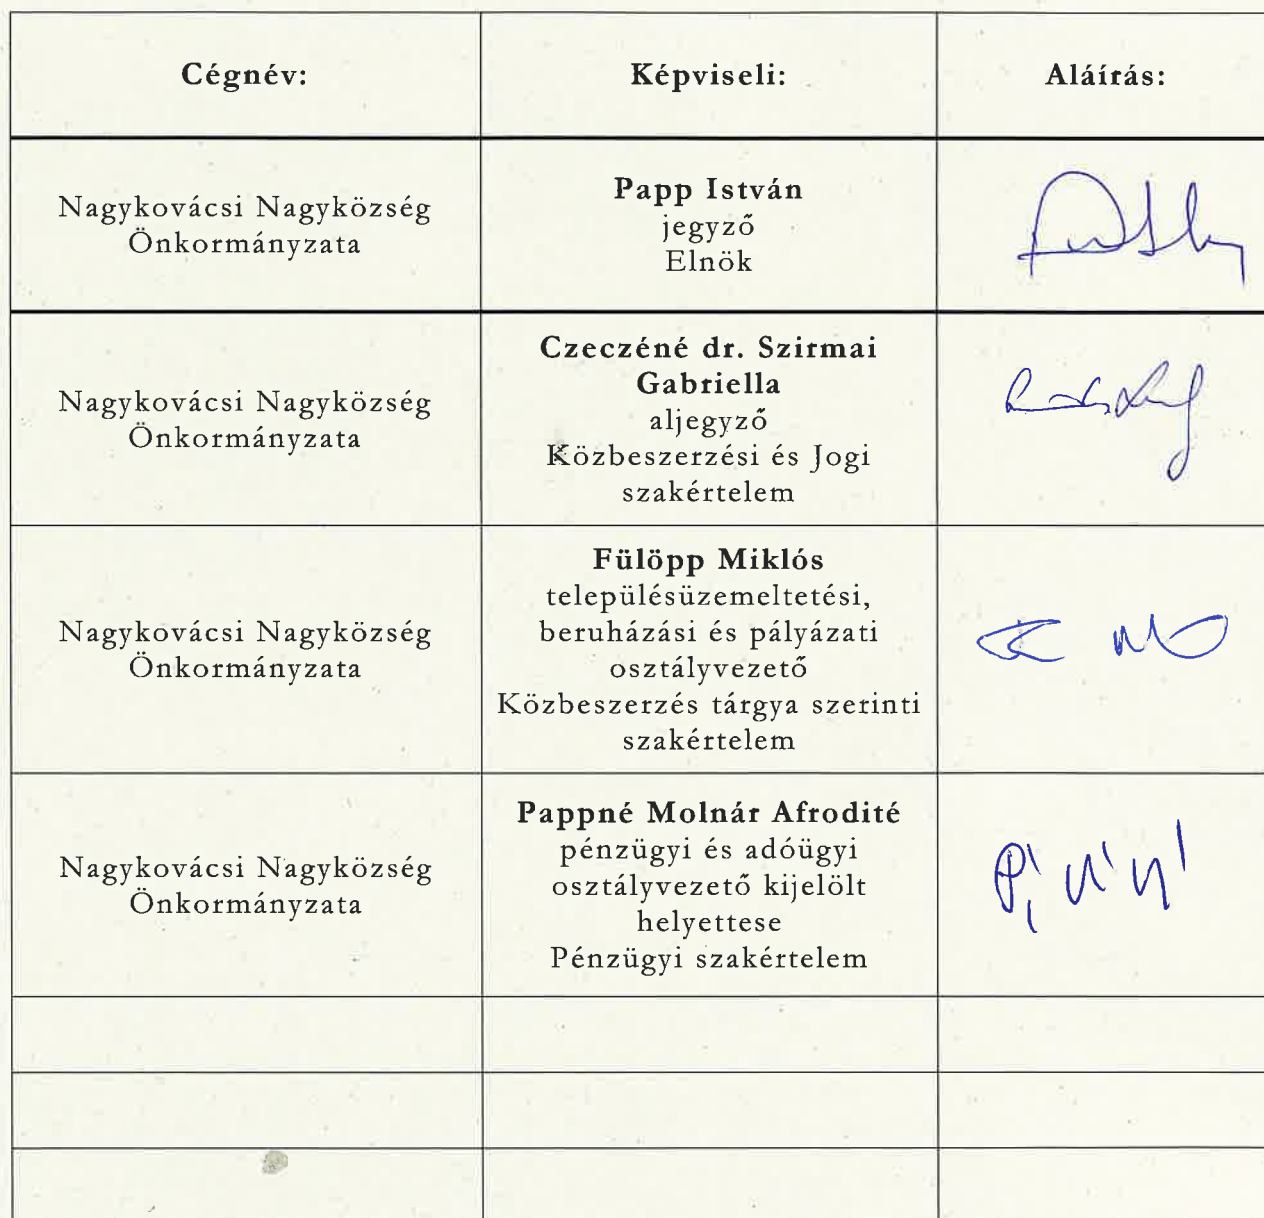 Cégnév:
Képviseli:
Aláírás:
Nagykovácsi Nagyközség
Önkormányzata
Papp István
jegyző
Elnök
Nagykovácsi Nagyközség
Önkormányzata
Czeczéné dr. Szirmai
Gabriella
aljegyző
Közbeszerzési és Jogi
szakértelem
Nagykovácsi Nagyközség
Önkormányzata
Fülöpp Miklós
településüzemeltetési,
beruházási és pályázati
osztályvezető
Közbeszerzés tárgya szerinti
szakértelem
Nagykovácsi Nagyközség
Önkormányzata
Pappné Molnár Afrodité
pénzügyi és adóügyi
osztályvezető kijelölt
helyettese
Pénzügyi szakértelem